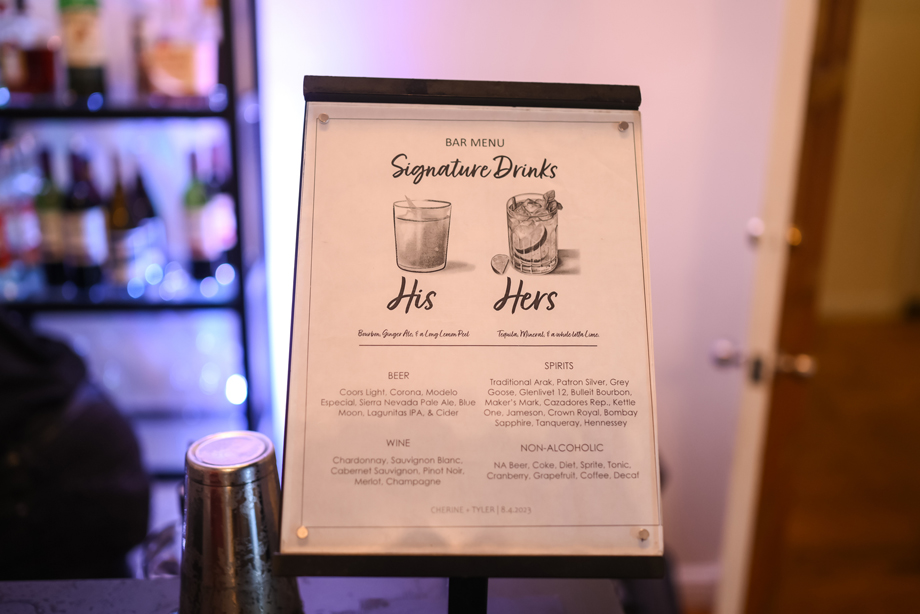 BAR MENU
Signature Drinks
His
Hers
Bourbon, Ginger Ale, & a Long Lemon Peel
Tequila, Mineral, & a whole lotta Lime
BEER
Coors Light, Corona, Modelo
Especial, Sierra Nevada Pale Ale, Blue
Moon, Lagunitas IPA, & Cider
SPIRITS
Traditional Arak, Patron Silver, Grey
Goose, Glenlivet 12, Bulleit Bourbon,
Maker's Mark, Cazadores Rep., Kettle
One, Jameson, Crown Royal, Bombay
Sapphire, Tanqueray, Hennessey
WINE
Chardonnay, Sauvignon Blanc,
Cabernet Sauvignon, Pinot Noir,
Merlot, Champagne
NON-ALCOHOLIC
NA Beer, Coke, Diet, Sprite, Tonic,
Cranberry, Grapefruit, Coffee, Decaf
CHERINE + TYLER | 8.4.2023